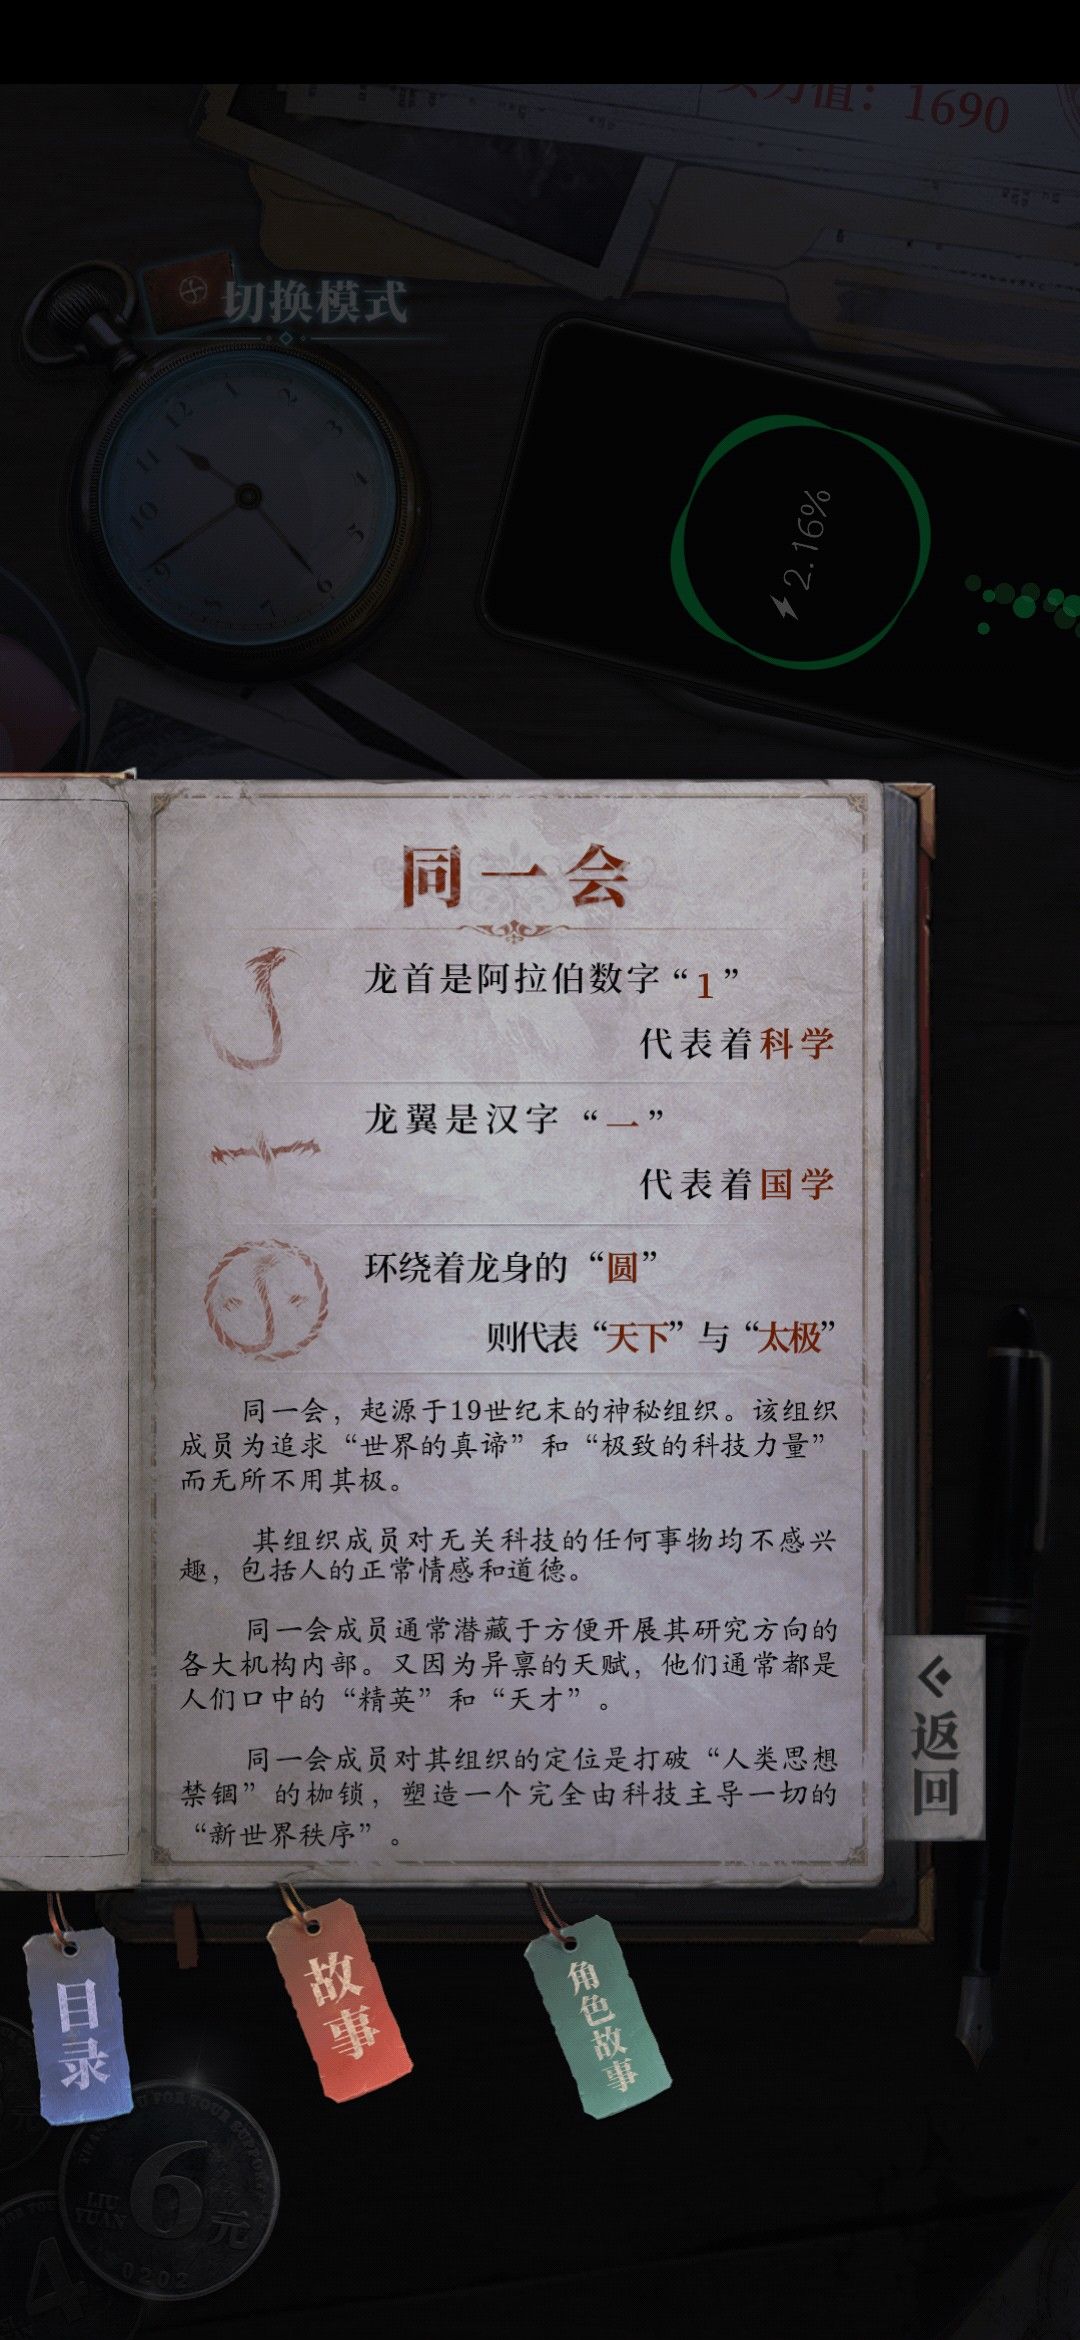 1690
切换模式
2.16%
同一会
龙首是阿拉伯数字“1”
代表着科学
龙翼是汉字 “一”
代表着国学
环绕着龙身的 “圆”
则代表“天下” 与 “太极”
同一会，起源于19世纪末的神秘组织。该组织
成员为追求“世界的真谛”和“极致的科技力量”
而无所不用其极。
其组织成员对无关科技的任何事物均不感兴
趣，包括人的正常情感和道德。
同一会成员通常潜藏于方便开展其研究方向的
各大机构内部。又因为异禀的天赋，他们通常都是
人们口中的“精英”和“天才”。
同一会成员对其组织的定位是打破“人类思想
禁锢”的枷锁，塑造一个完全由科技主导一切的
“新世界秩序”。
返回
目录
故事
角色故事
FOR YOUR SUPPORT
6元
LIU
YUAN
0202
4